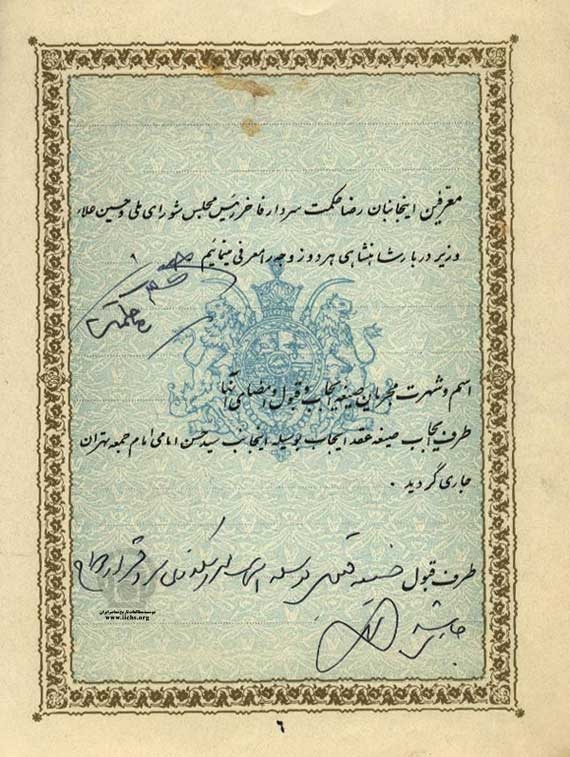 معرفین اینجانبان رضا حکمت سردار فاخر رئیس مجلس شورای ملی و حسین علاء
وزیر دربار شاهنشاهی هر دو زوجه را معرفی مینمائیم
اسم و شهرت مجریان صیغه ایجاب و قبول و امضای آنها
طرف ایجاب صیغه عقد ایجاب بوسیله اینجانب سید حسن امامی امام جمعه تهران
جاری گردید .
طرف قبول صیغه قبولی بوسیله
جاری شد
موسسه مطالعات تاریخ معاصر ایران
www.iichs.org
٦